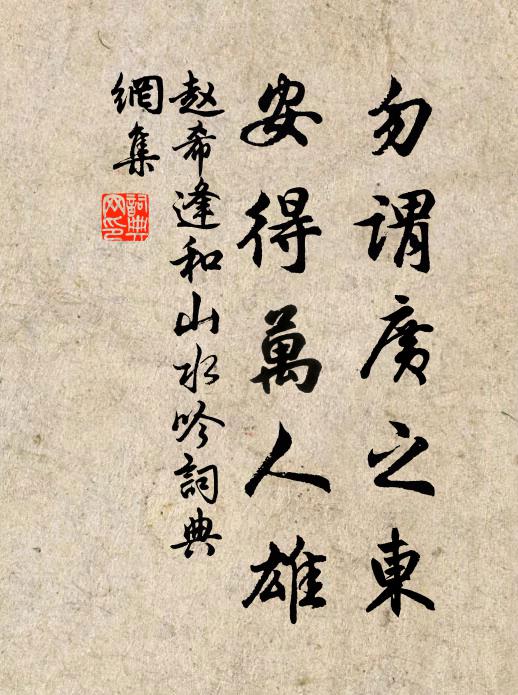 勿谓廣之東
安得萬人雄
赵希逢和山水吟詞典
網集
詞典
网印